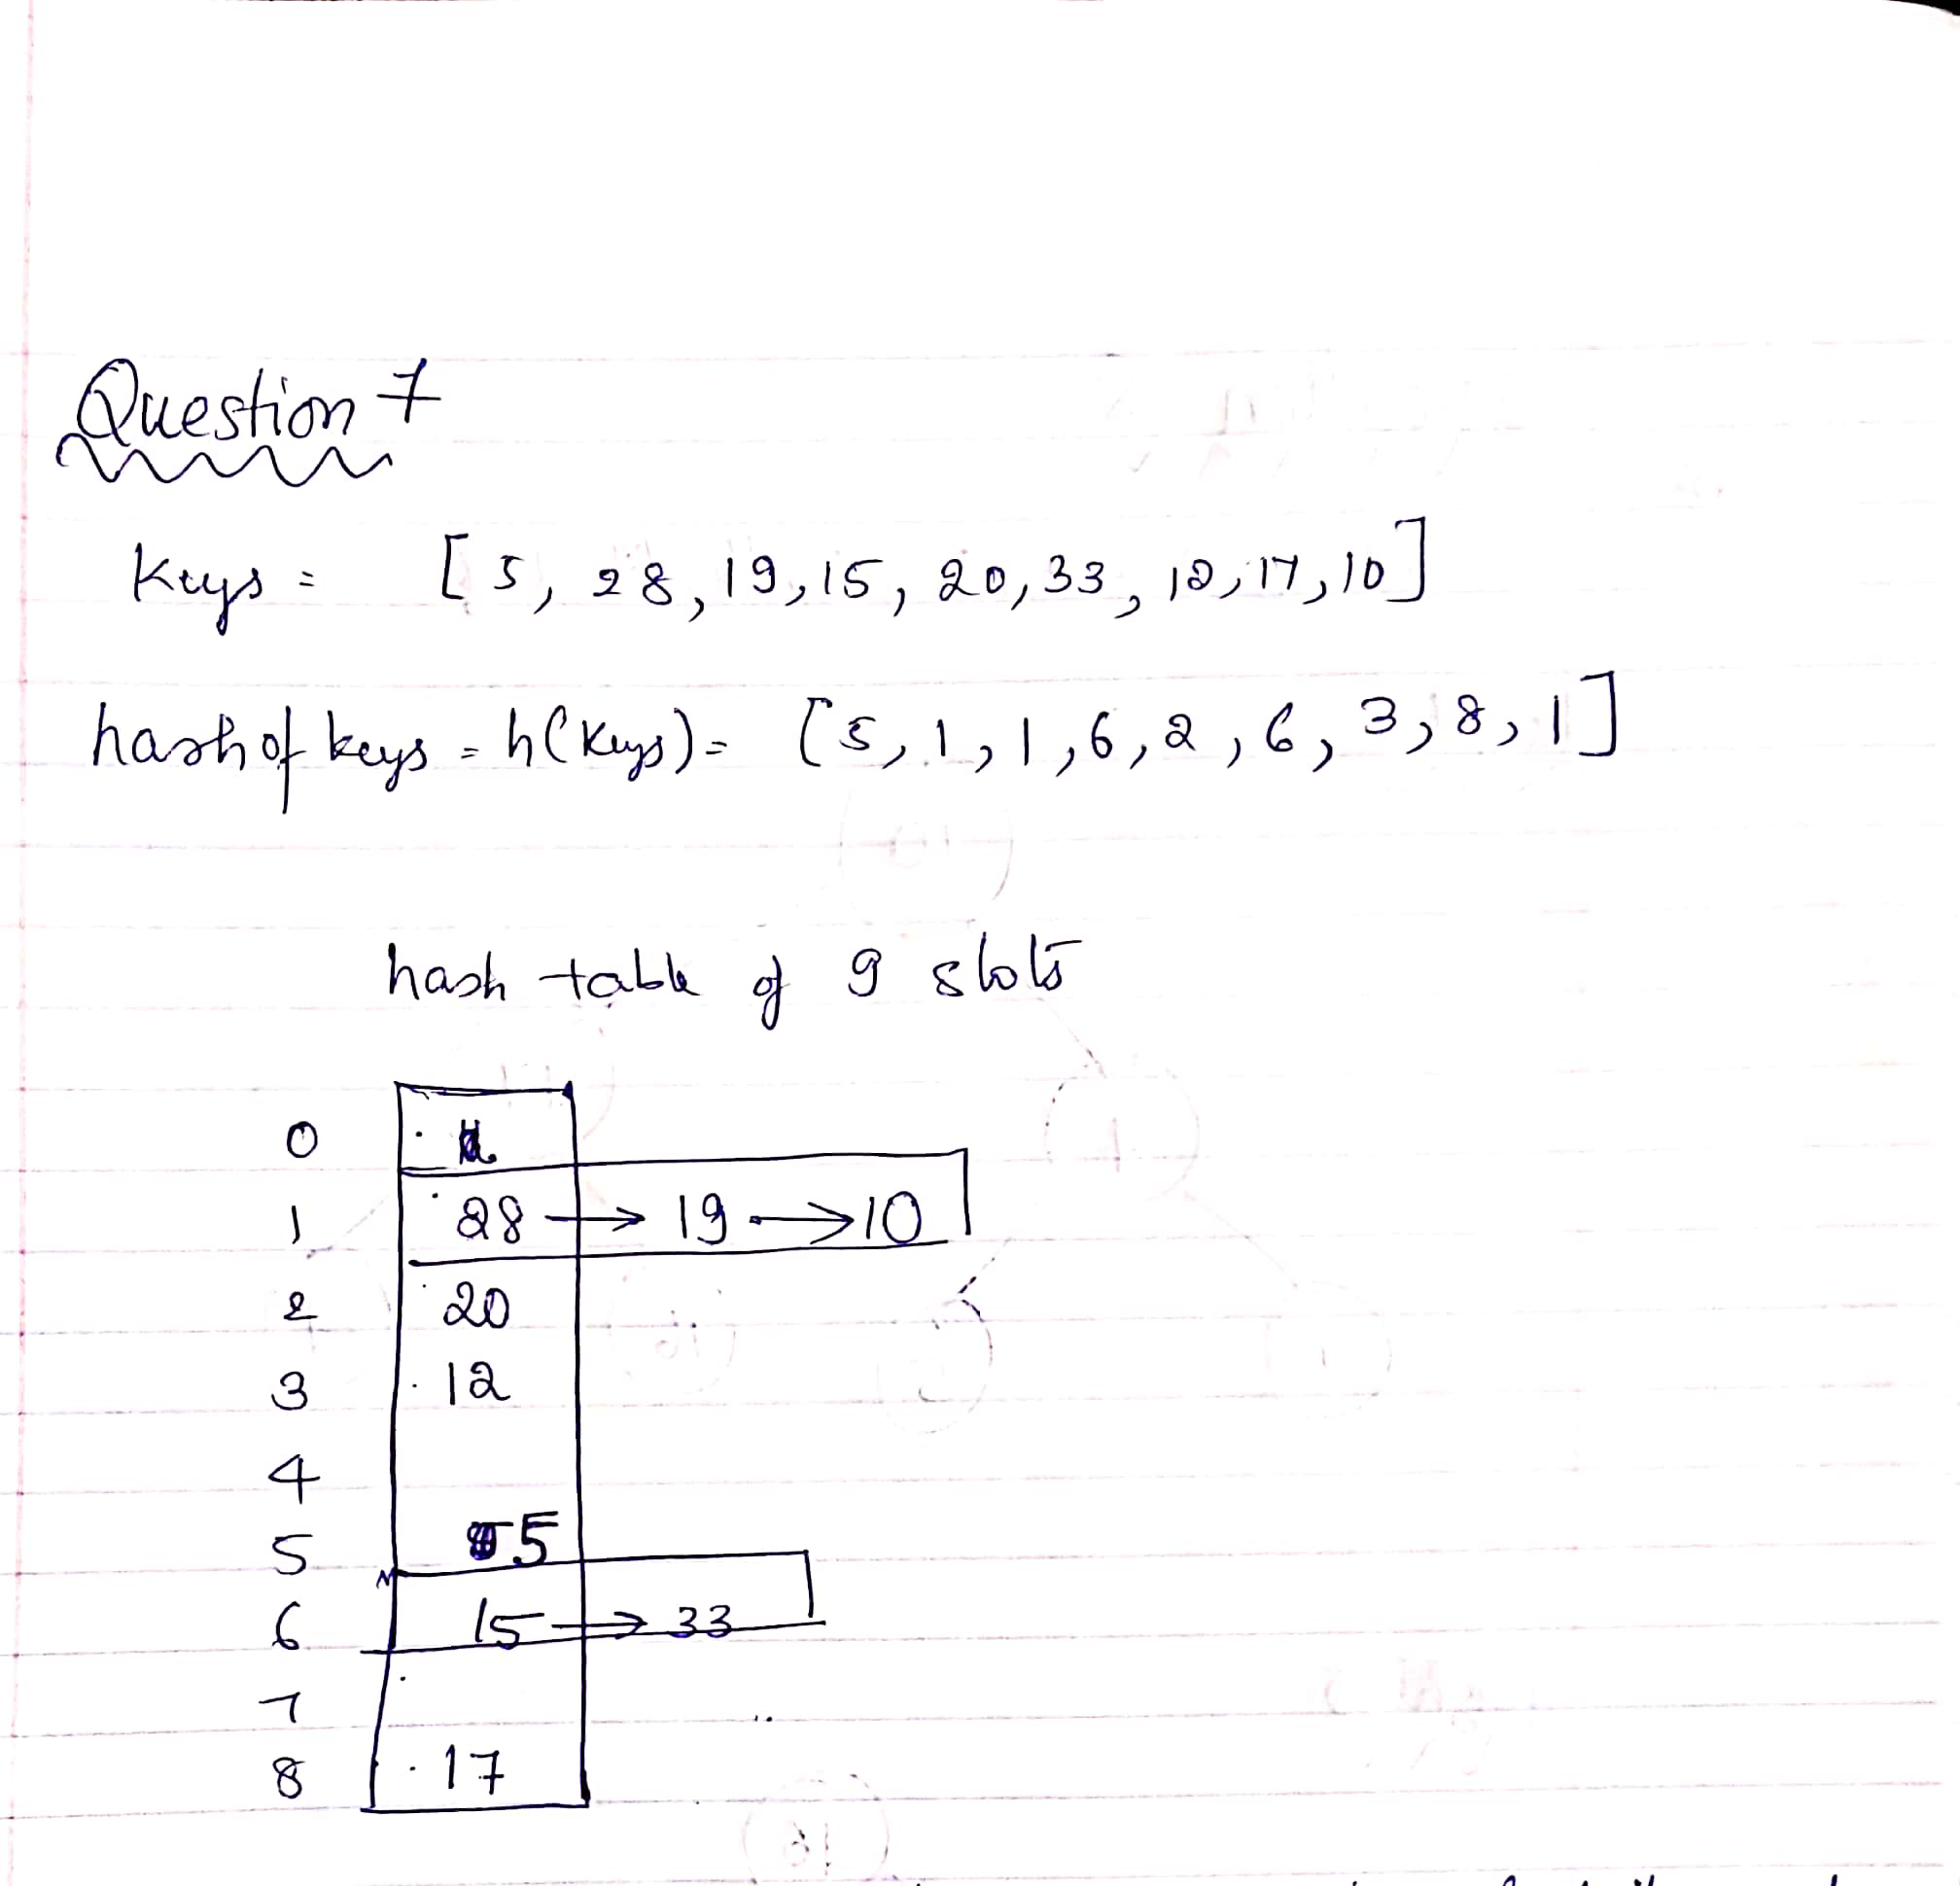 Question 7
keys = [5, 28, 19, 15, 20, 33, 12, 17, 10]
hash of keys = h(keys) = [5, 1, 1, 6, 2, 6, 3, 8, 1]
hash table of 9 slots
0
1 28 → 19 → 10
2 20
3 12
4
5 5
6 15 → 33
7
8 17